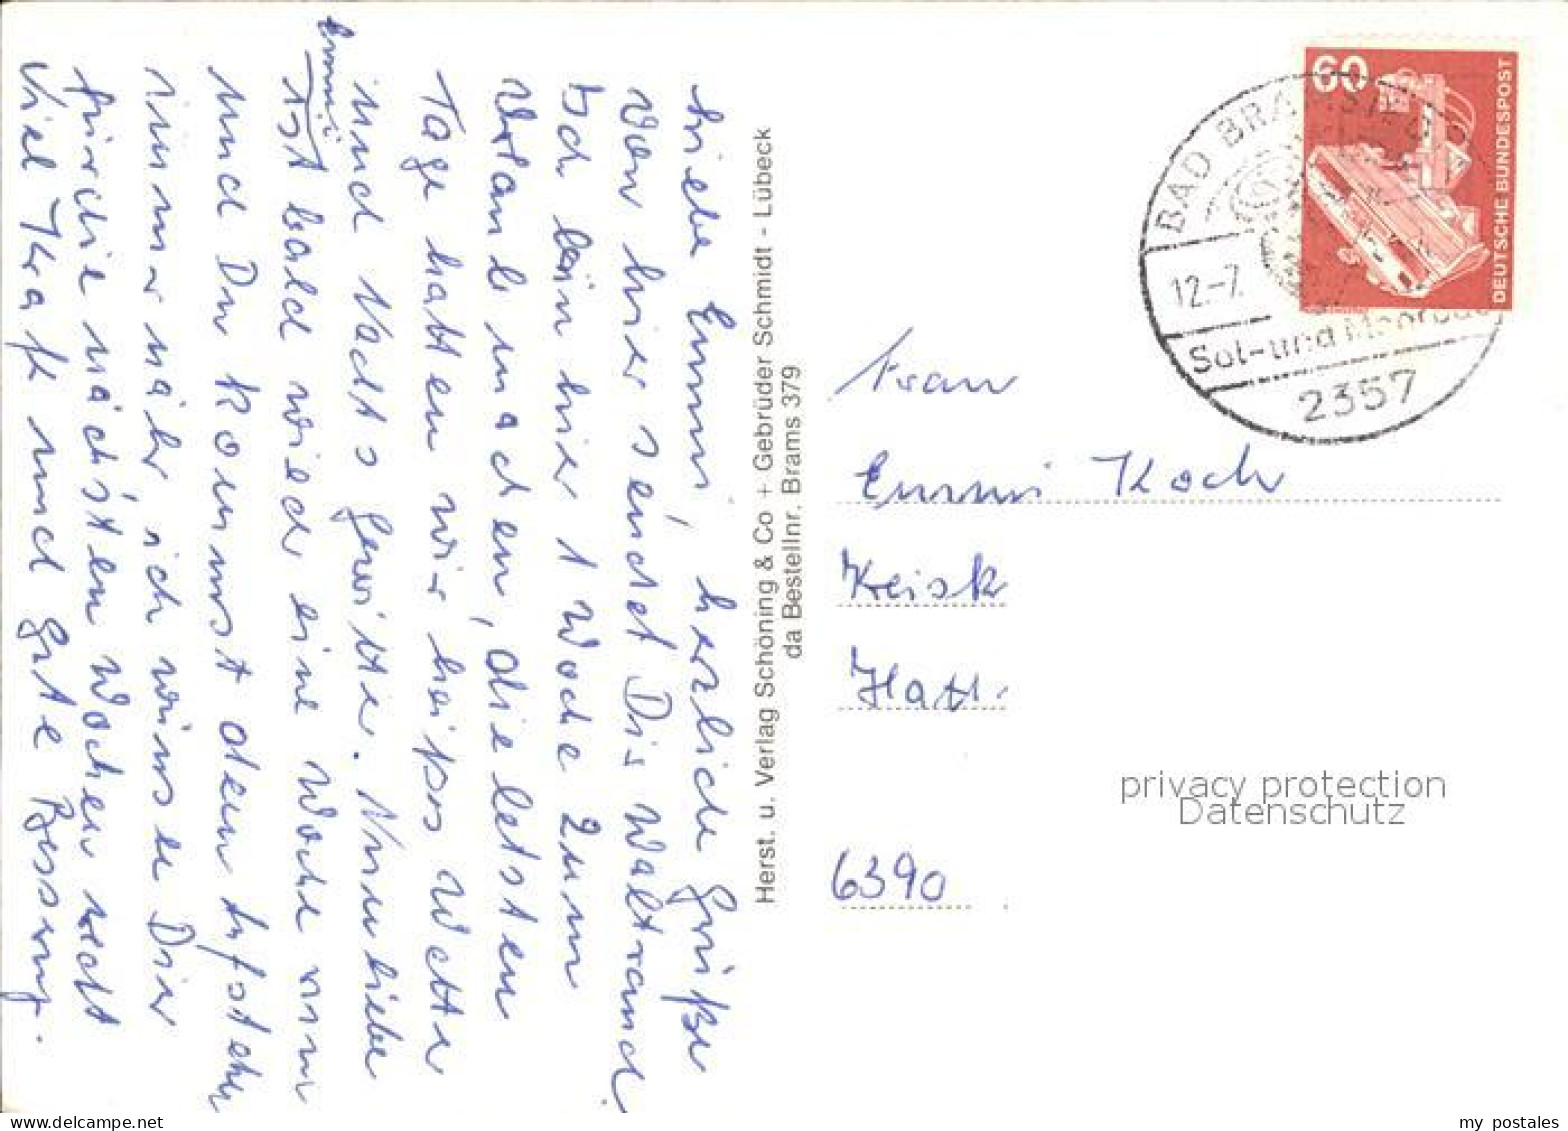 Liebe Emmi, herzliche Grüße
von hier sendet Dir Waltraud.
Ich bin hier 1 Woche zum
Urlaub machen, die letsten
Tage hatten wir heißes Wetter
und Nachts Gewitter. Nun liebe
Emmi
ist bald wieder eine Woche rum
und Du kommst dem Aufstehn
immer näher, ich wünsche Dir
für die nächsten Wochen recht
viel Kraft und gute Besserung.
Herst. u. Verlag Schöning & Co + Gebrüder Schmidt - Lübeck
da Bestellnr. Brams 379
60
DEUTSCHE BUNDESPOST
BAD BRAMSTEDT
12.-7.
Sol- und Moorbad
2357
Frau
Emmi Koch
6390
privacy protection
Datenschutz
my postales